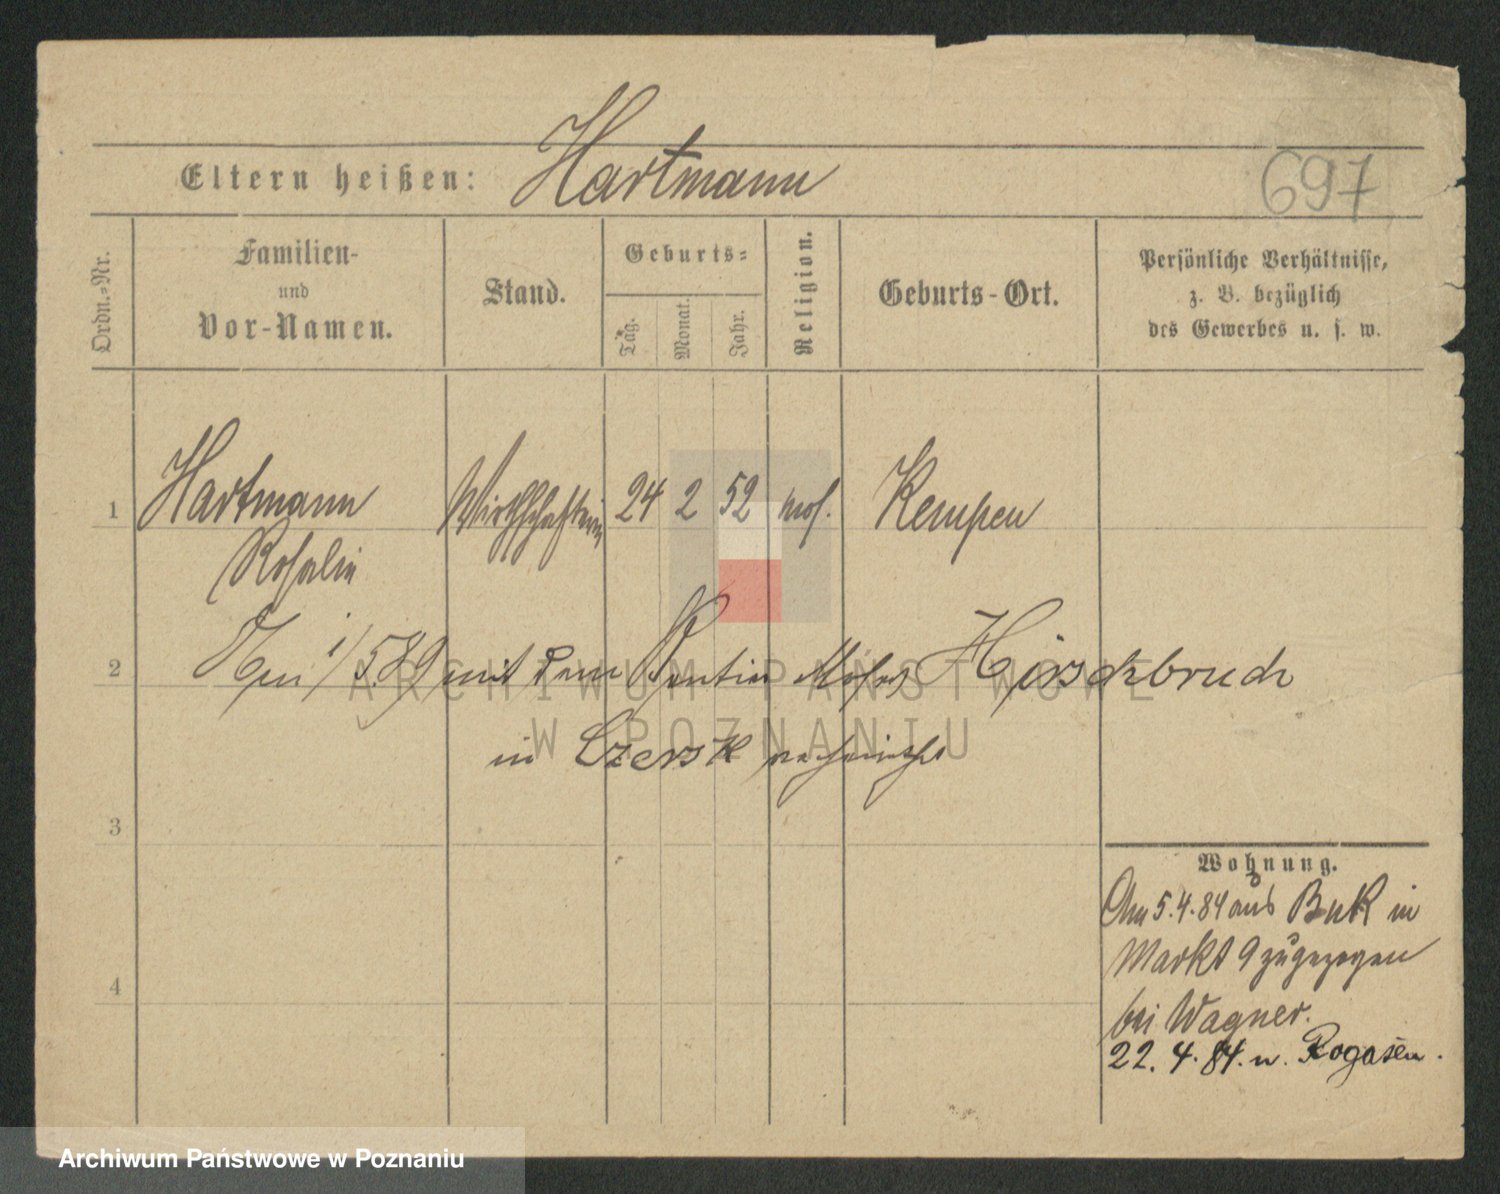 Eltern heißen: Hartmann
697
Ordn.-Nr.
Familien-
und
Vor-Namen.
Stand.
Geburts-
Tag.
Monat.
Jahr.
Religion.
Geburts-Ort.
Persönliche Verhältnisse,
z. B. bezüglich
des Gewerbes u. s. w.
1 Hartmann Wirthschafterin 24 2 52 mos. Kempen
Rosalie
2 1/5 89 mit dem Rentier Moses Hirschbruch
in Czersk
3
4
Wohnung.
Am 5.4.84 aus Buk in
Markt 9 zugezogen
bei Wagner.
22.4.84. n. Rogasen.
ARCHIWUM PAŃSTWOWE
W POZNANIU
Archiwum Państwowe w Poznaniu